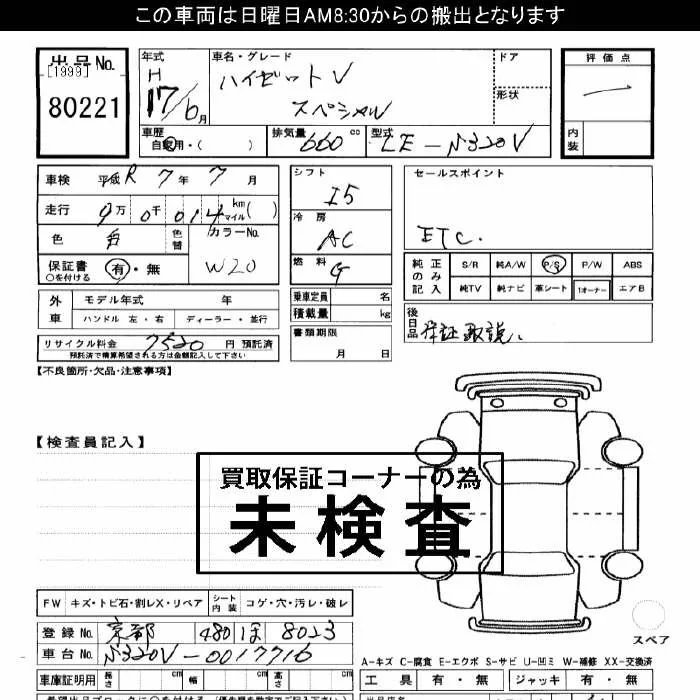 この車両は日曜日AM8:30からの搬出となります
出品No.
[1999]
80221
年式 H 17/6月
車名・グレード ハイゼットV スペシャル
ドア
形状
評価点 一
内装
車歴 自家用・( )
排気量 660 cc
型式 LE-S320V
車検 平成 R 7年 7月
走行 9万 0千 014 kmマイル( )
色 白 色替
カラーNo. W20
保証書 有・無
○を付ける
シフト I5
冷房 AC
燃料 G
セールスポイント
ETC.
純正のみ記入 S/R 純A/W P/S P/W ABS
純TV 純ナビ 革シート 1オーナー エアB
外車 モデル年式 年
ハンドル 左・右 ディーラー・並行
乗車定員 名
積載量 kg
リサイクル料金 7520 円 預託済
預託済で精算希望される方は金額記入して下さい
書類期限
月 日
後日品 保証 取説、
【不良箇所・欠品・注意事項】
【検査員記入】
買取保証コーナーの為
未検査
FW キズ・トビ石・割レX・リペア シート内装 コゲ・穴・汚レ・破レ
登録No. 京都 480 ほ 8023
車台No. S320V-0017716
スペア
車庫証明用 長さ cm 幅 cm 高さ cm
A-キズ C-腐食 E-エクボ S-サビ U-凹ミ W-補修 XX-交換済
工具 有・無 ジャッキ 有・無